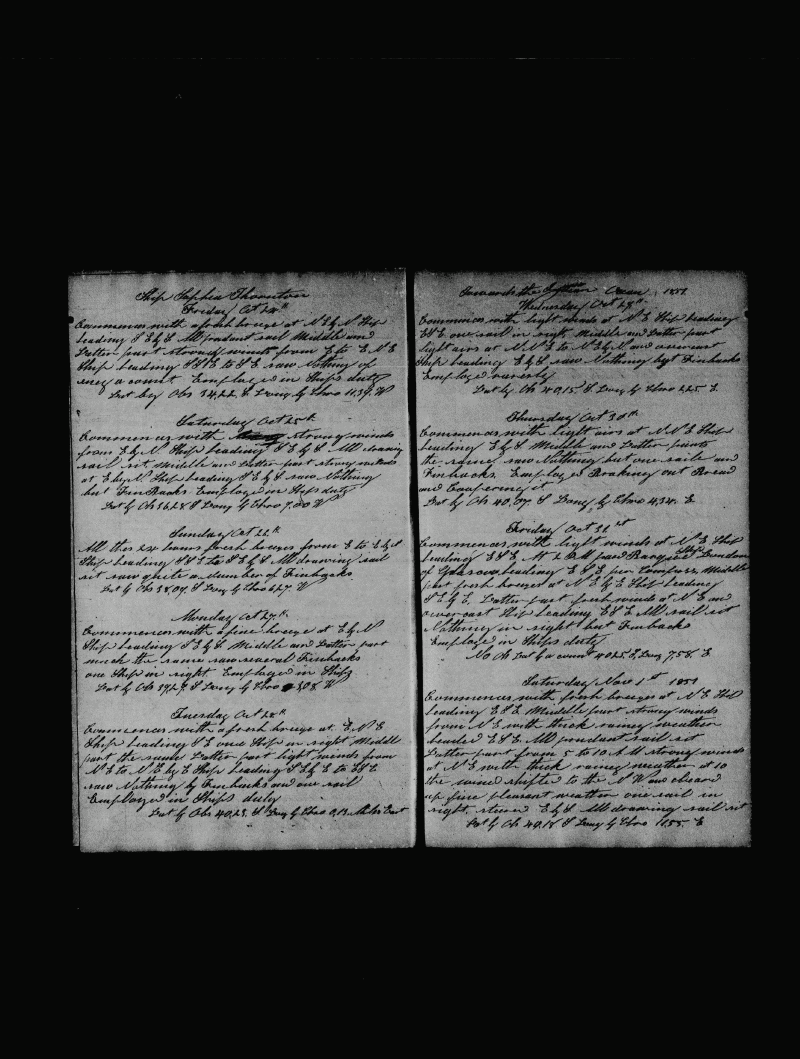 Ship Sophia Thornton
Friday Oct 24th
Commences with a fresh breeze at N E by N Ship
heading S E by E All prudent sail Middle and
Latter part strong winds from E to E N E
Ship heading S S E to S E saw Nothing of
any a count Employed in Ships duty
Lat by Obs 34,22 S Long by Chro 11,39 W
Saturday Oct 25th
Commences with strong winds
from E by N Ship heading S E by S All drawing
sail sit Middle and Latter part strong winds
at E by N Ship heading S E by S saw Nothing
but Fin Backs Employed in Ships duty
Lat by Obs 36,28 S Long by Chro 7,00 W
Sunday Oct 26th
All thes 24 hours fresh breezes from E to E by N
Ship heading S S E to S E by S All drawing sail
sit saw quite a number of Finbacks
Lat by Obs 38,07 S Long by Chro 4,27 W
Monday Oct 27th
Commences with a fine breeze at E by N
Ship heading S E by S Middle and Latter part
much the same saw several Finbacks
one Ship in sight Employed in Ships
Lat by Obs 39,27 S Long by Chro 3,08 W
Tuesday Oct 28th
Commences with a fresh breeze at E N E
Ship heading S E one Ship in sight Middle
part the same Latter part light winds from
N E to N E by E Ship heading S E by E to E S E
saw Nothing by Finbacks and one sail
Employed in Ships duty
Lat by Obs 40,23 S Long by Chro 0,13 Miles East
Towards the Indian Ocean 1851
Wednesday Oct 29th
Commences with light winds at N E Ship heading
E S E one sail in sight Middle and Latter part
light airs at N N E to N E by N and overcast
Ship heading E by S saw Nothing byt Finbacks
Employed variously
Lat by Obs 40,15 S Long by Chro 2,25 E
Thursday Oct 30th
Commences with light airs at N N E Ship
heading E by S Middle and Latter parts
the same saw Nothing but one saile and
Finbacks Employed Braking out Bread
and Coopering it
Lat by Obs 40,07 S Long by Chro 4,34 E
Friday Oct 31st
Commences with light winds at N E Ship
heading E S E At 2 P M Ship London
of heading E S E per Compass Middle
part fresh breezes at N E by E Ship heading
S E by E Latter part fresh winds at N E and
overcast Ship heading E S E All sail sit
Nothing in sight but Finbacks
Employed in Ships duty
No Ob Lat by a count 40,25 S Long 7,58 E
Saturday Nov 1st 1851
Commences with fresh breezes at N E Ship
heading E S E Middle part strong winds
from N E with thick rainey weather
headed E S E All prudent sail sit
Latter part from 5 to 10 A M strong winds
at N E with thick rainey weather at 10
the wind shifted to the N W and cleard
up fine pleasant weather one sail in
sight steerd E by S All drawing sail sit
Lat by Obs 40,18 S Long by Chro 11,55 E